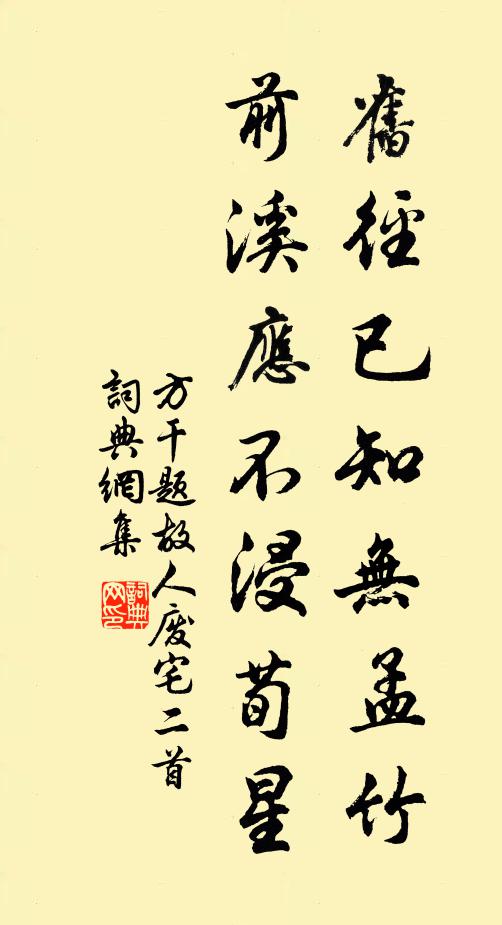 舊徑已知無孟竹
前溪應不浸荀星
方干题故人废宅二首
詞典網集
詞典网印